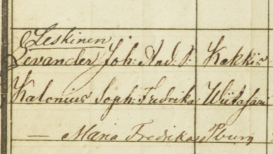 Leskinen
Levander Joh. And. S. Kakki
Kalonius Soph. Fredrika Wiitasaari
— Maria Fredrika